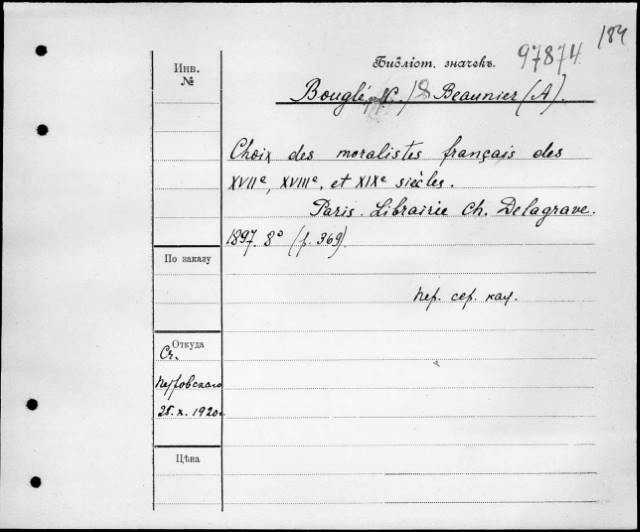 184
97874
Инв.
№
Библіот. значекъ.
Bouglé, / & Beaunier (A).
Choix des moralistes français des
XVIIe, XVIIIe, et XIXe siècles.
Paris. Librairie Ch. Delagrave.
1897. 8° (p. 369)
По заказу
пер. сер. кач.
Откуда
Ст.
Петровскаго
25. X. 1920г.
Цѣна